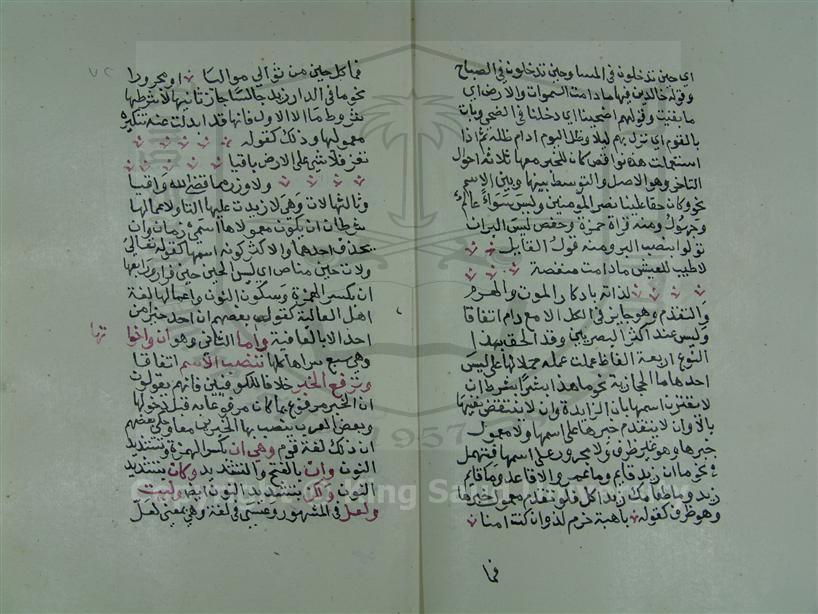 اي حين تدخلون في المسا وحين تدخلون في الصباح
وقوله خالدين فيها مادامت السموات والارض اي
مابقيت وقولهم اضحينا اي دخلنا في الضحى وبات
بالقوم اي نزل بهم ليلا وظل اليوم اي دام ظله ثم اذا
استعملت هذه نواقص كان للخبر معها ثلاثة احوال
التاخر وهو الاصل والتوسط بينها وبين الاسم
نحو وكان حقا علينا نصر المومنين وليس سواء عالم
وجهول ومنه قراة حمزة وحفص ليس البر ان
تولوا بنصب البر ومنه قول القايل
لا طيب للعيش مادامت منغصة
لذاته بادكار الموت والهرم
والتقدم وهو جايز في الكل الا مع دام اتفاقا
وليس عند اكثر البصريين وقد الحق بهذا
النوع اربعة الفاظ عملت عمله حملا لها على ليس
احدها ما الحجازية نحو ما هذا بشرا بشرط ان
لا يقترن اسمها بان الزايدة وان لا ينتقض نفيها
بالا وان لا يتقدم خبرها على اسمها ولا معمول
خبرها وهو غير ظرف ولا مجرور على اسمها فتهمل
نحو ما ان زيد قايم وما عمرو الا قاعد وما قايم
زيد وما طعامك زيد اكل فلو تقدم معمول خبرها
وهو ظرف كقوله باهبة حزم لذ وان كنت امنا
فما
٧٢
فما كل حين من توالي مواليا او مجرورا
نحو ما في الدار زيد جالسا جاز ثانيها لا بشرطها
بشروط ما الا الاول فانها قد ابدلت عنه تنكير
معموليها وذلك كقوله
تعز فلا شي على الارض باقيا
ولا وزر مما قضى الله واقيا
وثالثها لات وهي لا زيدت عليها التا ولاعمالها
شرطان ان يكون معمولاها اسمي زمان وان
يحذف احدهما والاكثر كونه اسمها كقوله تعالى
ولات حين مناص اي ليس الحين حين فرار ورابعها
ان بكسر الهمزة وسكون النون واعمالها لغة
اهل العالية كقول بعضهم ان احد خيرا من
احد الا بالعافية واما الثاني وهو ان واخوا
تها
وهي سبع مراها كلها تنصب الاسم اتفاقا
وترفع الخبر خلافا للكوفيين فانهم يقولون
ان الخبر مرفوع بما كان مرفوعا به قبل دخولها
وبعض العرب ينصب بها الخبر بن معا وحكى بعضهم
ان ذلك لغة قوم وهي ان بكسر الهمزة وتشديد
النون وان بالفتح والتشديد وكان بتشديد
النون ولكن بتشديد النون ايضا وليت
ولعل في المشهور وعسى في لغة وهي بمعنى لعل
Copyright © King Saud University
1957